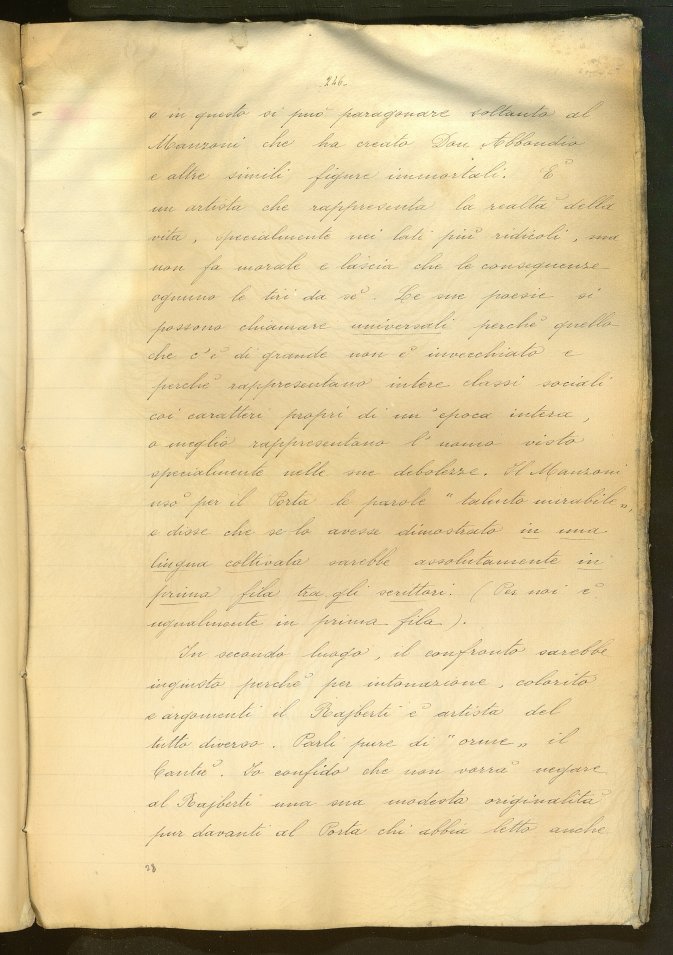 246.
e in questo si può paragonare soltanto al
Manzoni che ha creato Don Abbondio
e altre simili figure immortali. È
un artista che rappresenta la realtà della
vita, specialmente nei lati più ridicoli, ma
non fa morale e lascia che le conseguenze
ognuno le tiri da sè. Le sue poesie si
possono chiamare universali perchè quello
che c'è di grande non è invecchiato e
perchè rappresentano intere classi sociali
coi caratteri propri di un'epoca intera,
o meglio rappresentano l'uomo visto
specialmente nelle sue debolezze. Il Manzoni
usò per il Porta le parole "talento mirabile„
e disse che se lo avesse dimostrato in una
lingua coltivata sarebbe assolutamente in
prima fila tra gli scrittori. (Per noi è
ugualmente in prima fila).
In secondo luogo, il confronto sarebbe
ingiusto perchè per intonazione, colorito
e argomenti il Rajberti è artista del
tutto diverso. Parli pure di "orme„ il
Cantù. Io confido che non vorrà negare
al Rajberti una sua modesta originalità
pur davanti al Porta chi abbia letto anche
28